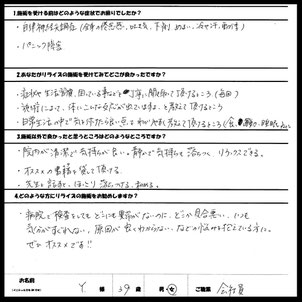 1.施術を受ける前はどのような症状でお困りでしたか?
・自律神経失調症(全身の倦怠感、吐き気、下痢、めまい、冷や汗、動悸)
・パニック障害
2.あなたがリライズの施術を受けてみてどこが良かったですか?
・症状や生活習慣、困っている事などを丁寧に聞いて頂けるところ(毎回)
・施術によって、体にこんな反応が出ていますよ、と教えて頂ける
・日常生活の中で気を付けたら良い点をわかりやすく教えて頂けるところ(食、
3.施術以外で良かったと思うところはどのようなところですか?
・院内が清潔で気持ちが良い。静かで気持ちも落ちつく、リラックスできる。
・オススメの書籍を貸して頂ける。
・先生と話すと、ほっとし落ちつける、和める。
4.どのような方にリライズの施術をお勧めしますか?
・病院で検査をしてもどこも異常がないのに、どこか具合悪い、いつも
気分がすぐれない、原因が良くわからない、などの悩みを抱えている方に。
ぜひオススメです!!
お名前 Y 様 39歳 男・女 ご職業 会社員